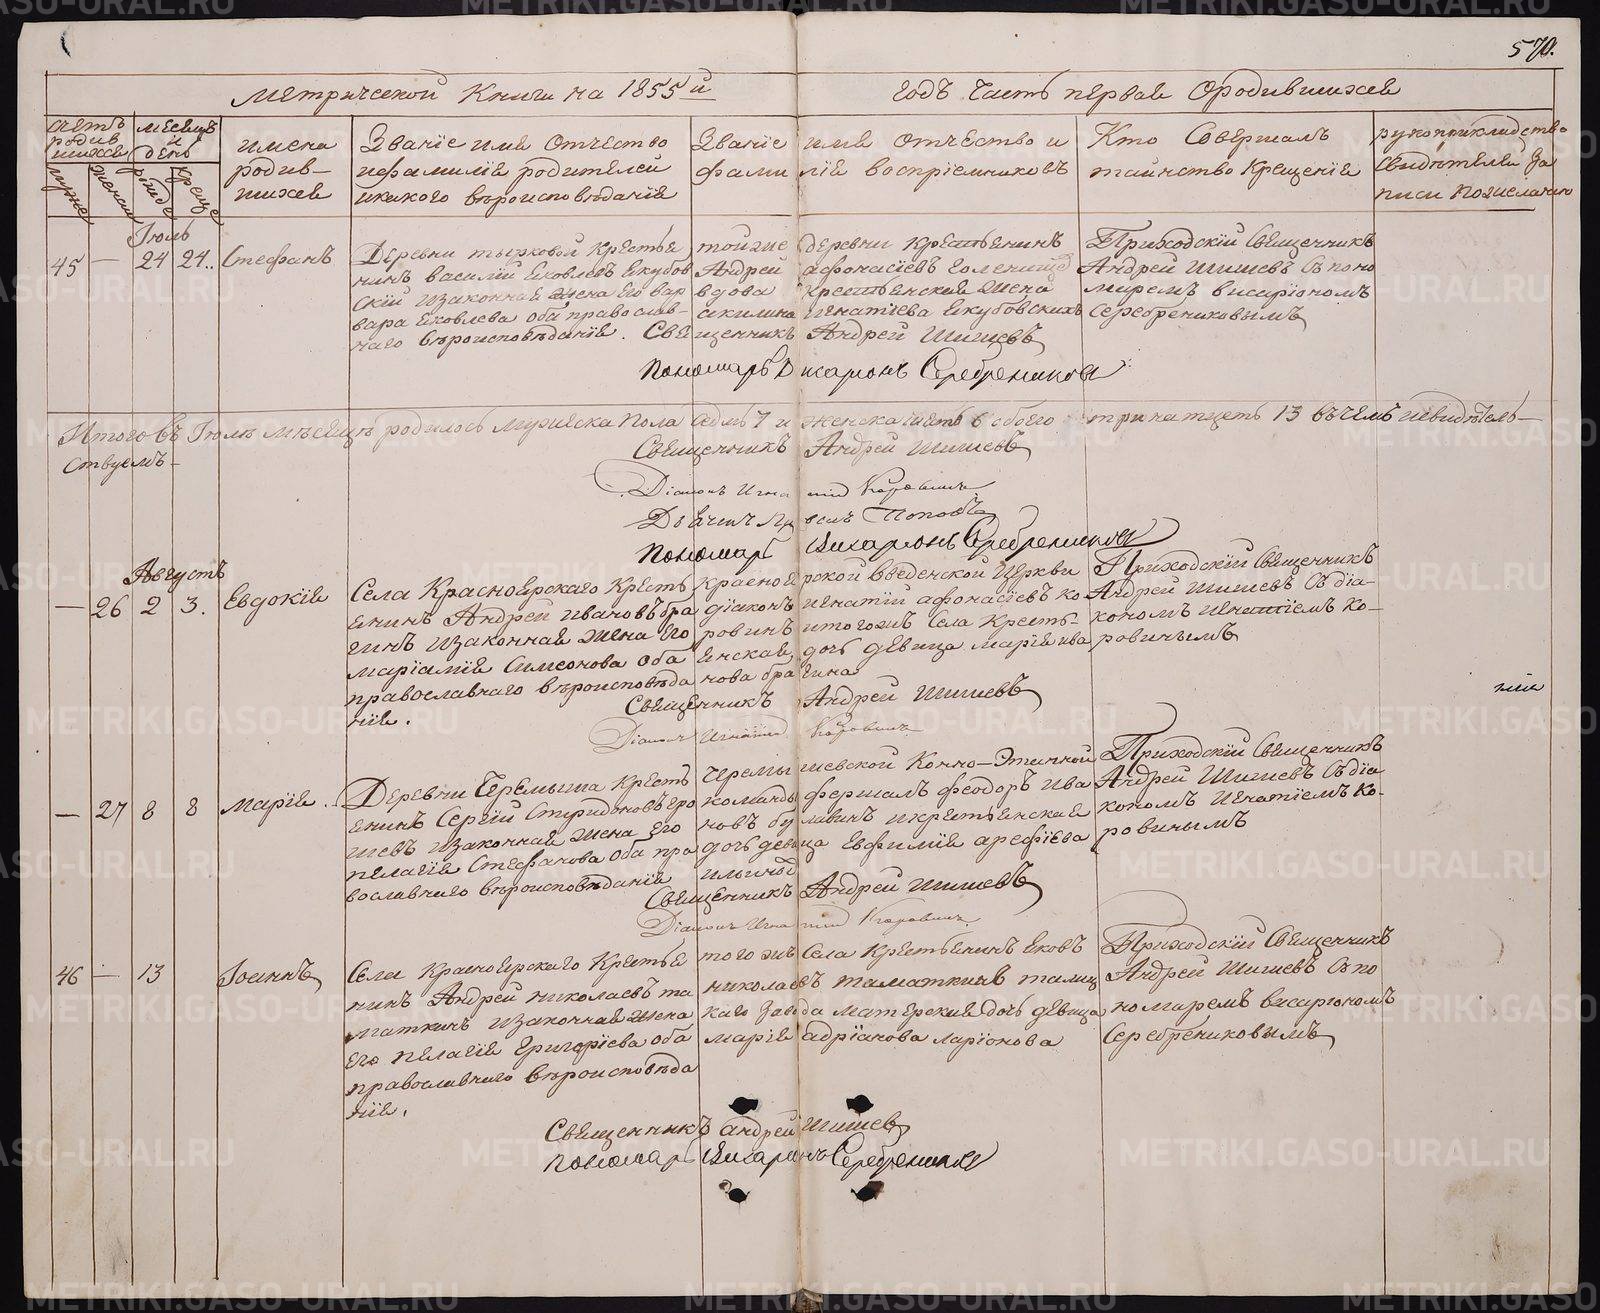 570.
Метрической Книги на 1855й годъ Часть первая Ородившихся
счетъ родившихся
мужес
женск
месяцъ и день
рожде
креще
имена родив-
шихся
Званіе имя Отчество
ифамилія родителей
икакого вѣроисповѣданія
Званіе имя отчество и
фамилія воспріемниковъ
Кто Совершалъ
таинство Крещенія
рукоприкладство
свидѣтелей за
писи пожеланію
Іюль
45 — 24 24.. Стефанъ
Деревни тырковой Крестья
нинъ василій яковлевъ якубов
скій изаконная жена Его вар
вара яковлева оба православ-
наго вѣроисповѣданія.
тойже деревни крестьянинъ
Андрей афонасіевъ голенищ
вдова крестьянская жена
акилина игнатіева якубовскихъ
Приходскій Священникъ
Андрей Шишевъ Съ поно
маремъ висаріономъ
Серебрениковымъ
Священникъ Андрей Шишевъ
Пономарь Висаріонъ Серебрениковъ
Итого въ Іюлѣ мѣсяцѣ родилось мужеска пола Седмь 7 и женска шесть 6 обоего тринатцеть 13 въчемъ исвидѣтель-
ствуемъ-
Священникъ Андрей Шишевъ
Діаконъ Игнатій Коровинъ
Дьячекъ Поповъ
Пономарь Висаріонъ Серебрениковъ
Августъ
— 26 2 3. Евдокія
Села Красноярскаго Кресть
янинъ Андрей ивановъ бра
гинъ изаконная жена Его
маріамія Симеонова оба
православнаго вѣроисповѣда
нія.
красноярской введенской Церкви
діаконъ игнатій афонасіевъ ко
ровинъ итогожъ Села Кресть-
янская дочь девица марія ива
нова брагина
Приходскій Священникъ
Андрей Шишевъ Съ діа-
кономъ игнатіемъ Ко-
ровинымъ
Священникъ Андрей Шишевъ
Діаконъ Игнатій Коровинъ
— 27 8 8 Марія.
Деревни Черемыша Кресть
янинъ Сергій Спиридоновъ Еро
шевъ изаконная жена Его
пелагія Стефанова оба пра
вославнаго вѣроисповѣданія
Черемышевской Конно-Этапной
команды фершалъ феодоръ ива
новъ булавинъ икрестьянская
дочь девица Евфимія арефіева
Приходскій Священникъ
Андрей Шишевъ Съ діа
кономъ Игнатіемъ Ко-
ровинымъ
Священникъ Андрей Шишевъ
Діаконъ Игнатій Коровинъ
46 — 13 Іоаннъ
Села Красноярскаго Крестья
нинъ Андрей николаевъ та
маткинъ изаконная жена
Его пелагія григоріева оба
православнаго вѣроисповѣда
нія.
того жъ Села Крестьянинъ яковъ
николаевъ таматкинъ талиц
каго завода мастерская дочь девица
марія адріанова ларіонова
Приходскій Священникъ
Андрей Шишевъ Съ по
номаремъ висаріономъ
Серебрениковымъ
Священникъ андрей Шишевъ
Пономарь Висаріонъ Серебрениковъ
METRIKI.GASO-URAL.RU